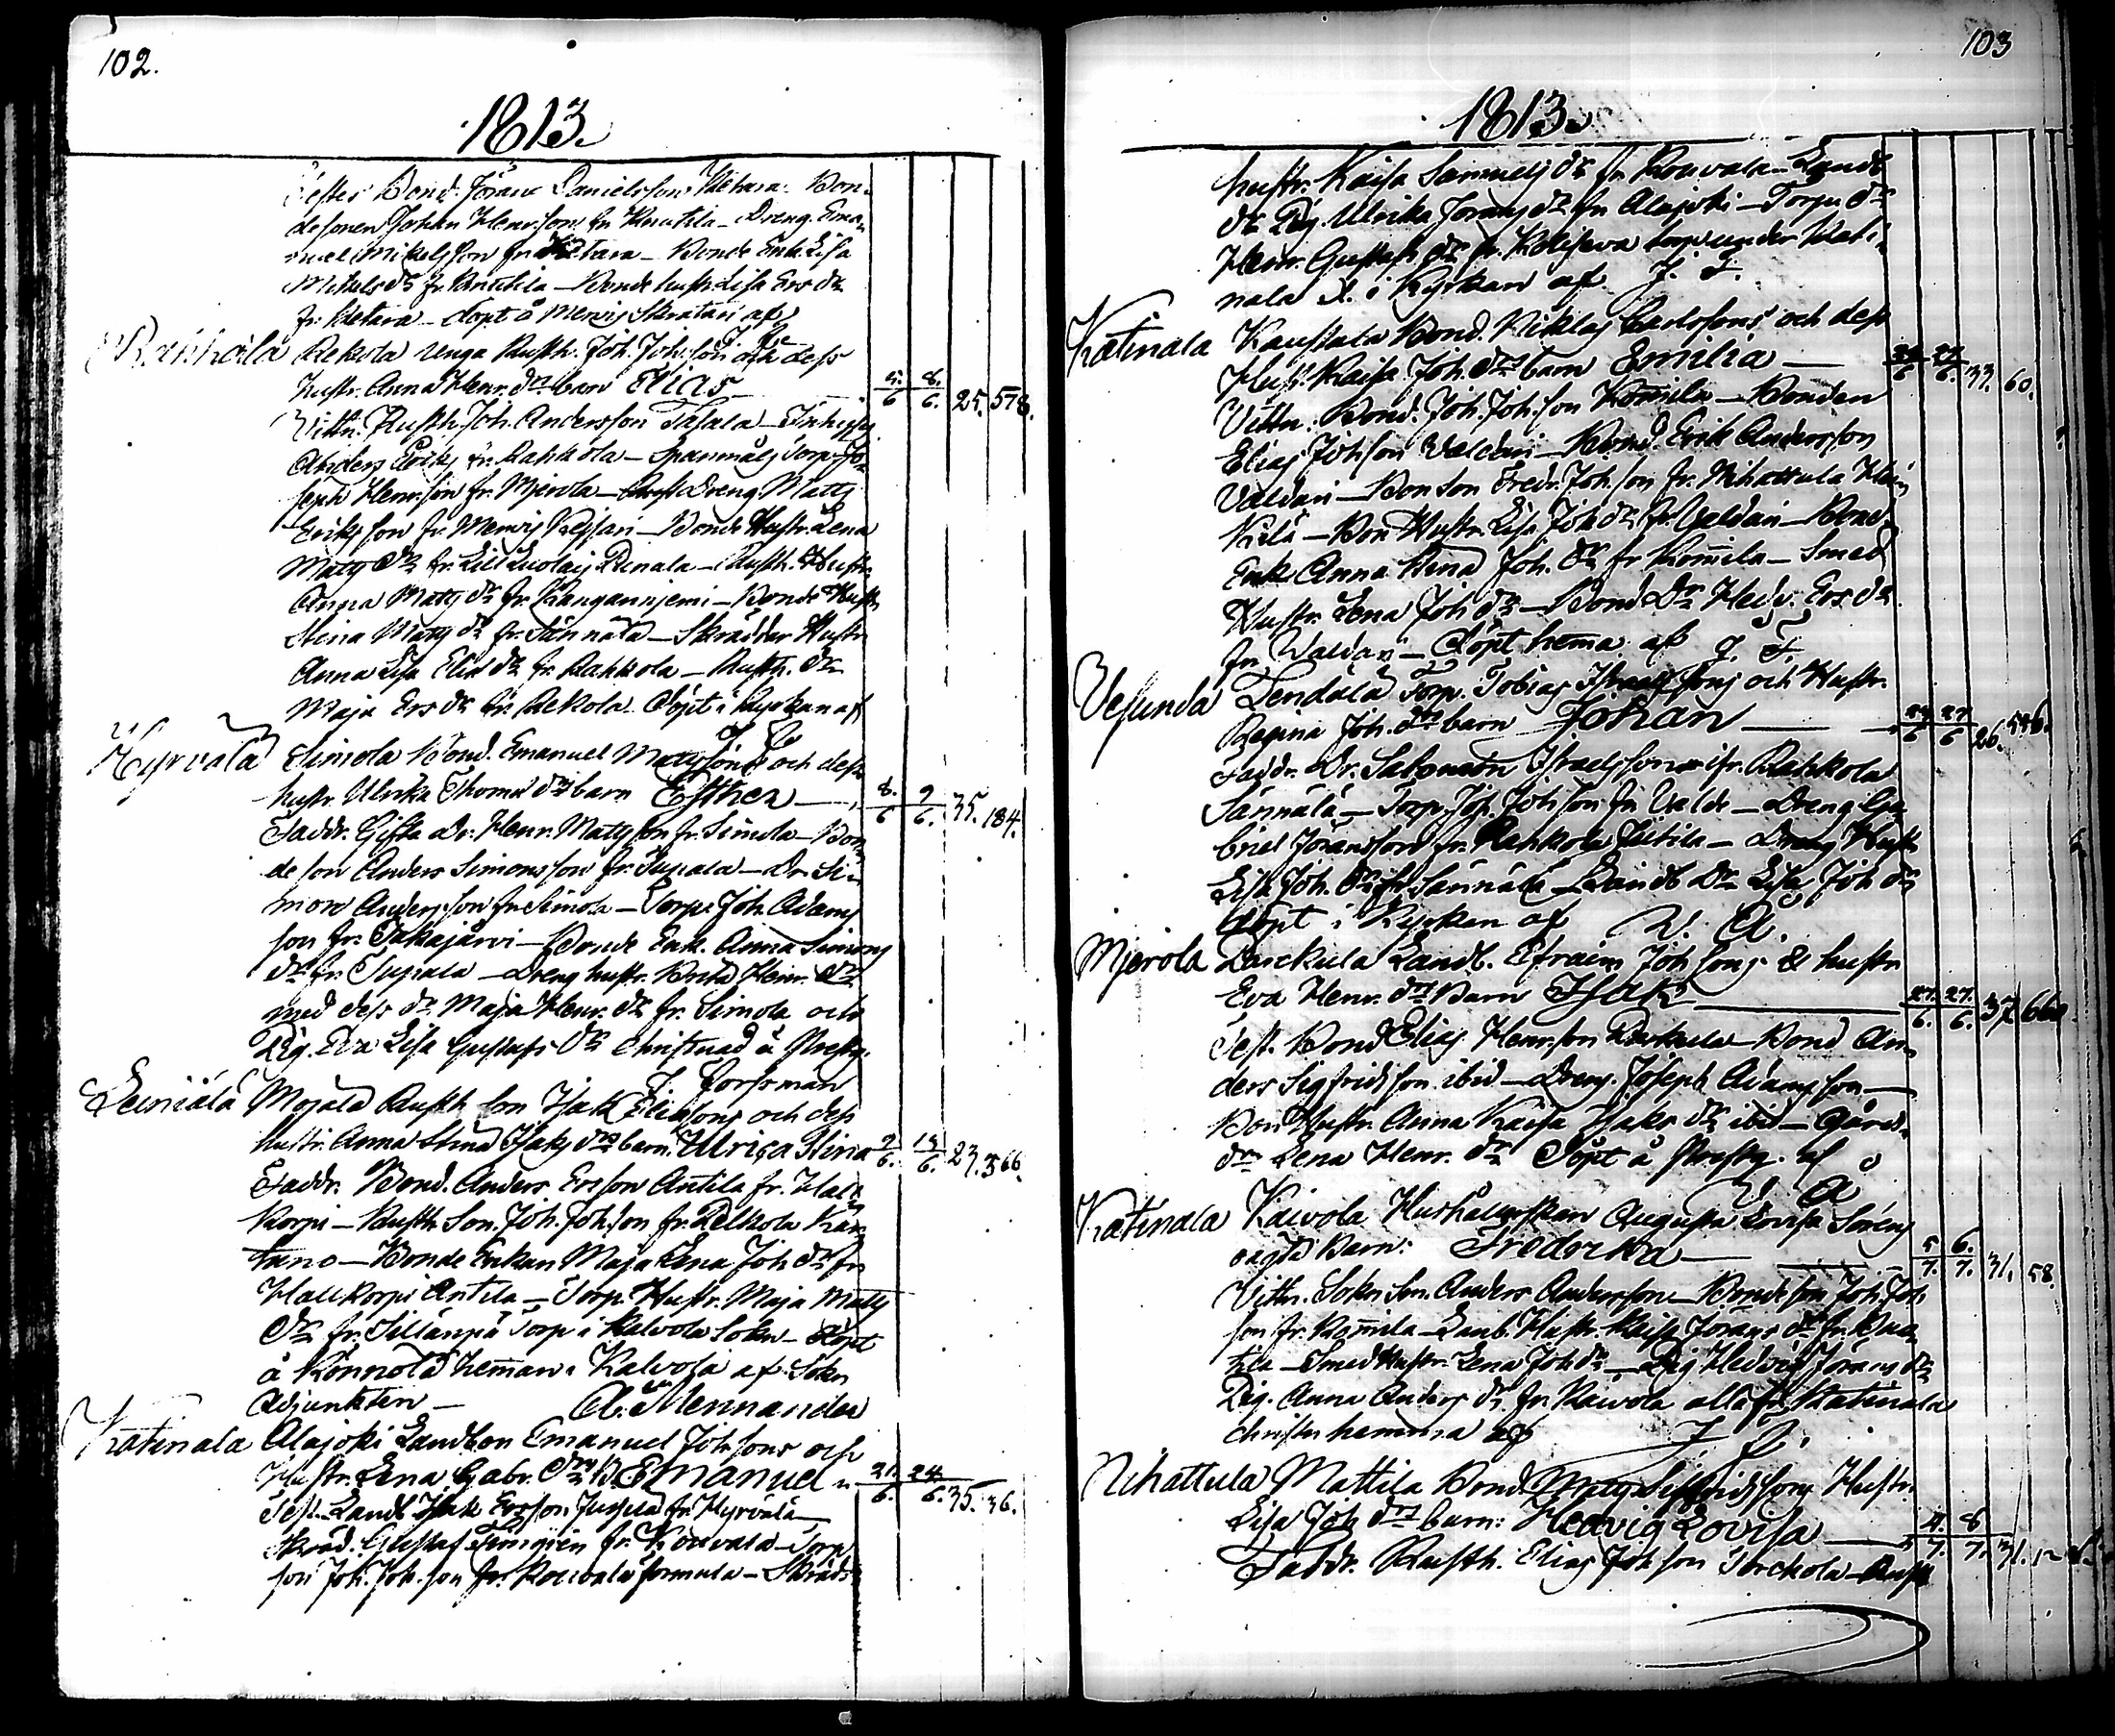 102.
1813.
Testes Bond. Jöran Danielsson Ketara. Bon-
desonen Johan Henr.son fr. Knutila - Dreng. Ema-
nuel Mikelsson fr. Ketara - Bonde Enk. Lisa
Mikels dr fr. Knutila - Bonde hustr. Lisa Ers dr
fr. Ketara - döpt å Mervis Skratari af
J. F.
Rahkoila Rekola unga Rusth. Joh. Joh.son och dess
hustr. Anna Henr. drs barn Elias 5/6 8/6. 25. 578.
Vittn. Rusth. Joh. Andersson Tasala - Inhyses
Anders Eriks fr. Rahkola - Spanmåls Torp. Jo-
seph Henr.son fr. Mjerola - Dreng Matts
Eriksson fr. Mervis - Bonde Hustr. Lena
Mats dr fr. Lill Luolais - Rusth. Hustr.
Anna Mats dr fr. Kangannjemi - Bonde Hustr.
Stina Mats dr fr. Sännälä - Skräddar Hustr.
Anna Lisa Elis dr fr. Rahkola - Rusth. dr
Maja Ers dr fr. Rekola. Döpt i Kyrkan af
J. F.
Hyrvälä Simola Bond. Emanuel Matssons och dess
hustr. Ulrika Thomæ drs barn Esther 8./6 9/6. 35. 184.
Faddr. Gifta Dr. Henr. Matsson fr. Simola - Bon-
de son Anders Simonsson fr. Tupiala - Dr. Si-
mon Andersson fr. Simola - Torp. Joh. Adams
son fr. Takajärvi - Bonde Enk. Anna Simons
dr fr. Tupiala - Dreng hustr. Brita Henr. dr
med dess dr Maja Henr. dr fr. Simola och
Pig. Eva Lisa Gustafs dr Christnad å Prestg.
J. Forsman
Leiniälä Mojala Rusth. son Isak Eliæsons och dess
hustr. Anna Stina Isaks drs barn Ulrica Stina 9/6. 13/6. 27. 366.
Faddr. Bond. Anders Ersson Antila fr. Hall-
korpi - Rusth. Son. Joh. Joh.son fr. Pelkola Kar-
tano - Bonde Enkan Maja Lena Joh dr fr
Hallkorpi Antila - Torp. Hustr. Maja Matts
dr fr. Sillänpä Torp i Kalvola Sokn - döpt
å Könnola hemman i Kalvola af Sokn
Adjunkten - A. Mennander
Katinala Alajoki Landbon Emanuel Joh.sons och
Hustr. Lena Gabr. drs B. Emanuel 21./6. 24./6. 35. 36.
Test. Landb. Isak Ersson Jussila fr. Hyrvälä
Skräd. Gustaf fr. Kouvala - Torp
son Joh. Joh.son fr. Kouvala - Skrädd
103
1813.
hustr. Kaisa Samuels dr fr. Kouvala - Landb
dr Pig. Ulrika Jörans dr fr. Alajoki - Torpu dr
Henr. Gustafs dr fr. torp under Kati-
nala d. i Kyrkan af J. F.
Katinala Kauppala Bond. Niklas Carlssons och dess
Hustr. Kaisa Joh. drs barn Emilia 24/6 27./6. 33. 60.
Vittn. Bond. Joh. Joh.son Komila - Bonden
Elias Joh.son Valdari - Bond. Erik Andersson
Valdari - Bon Son Fredr. Joh.son fr. Nihattula
Kylä - Bon Hustr. Lisa Joh dr fr. Valdari - Bond.
Enk. Anna Stina Joh. dr fr Komila - Smed
Hustr. Lena Joh dr - Bond. Dr Hedv. Ers dr
fr. Valdari - Döpt hemma af J. F.
Vesunda Tendälä Torp. Tobias Israelssons och Hustr.
Regina Joh. drs barn Johan 24/6 27/6 26. 546.
Faddr. Dr. Salomon Israelsson ifr. Rahkola
Sännälä - Torp. Joh. Joh.son fr. Valde - Dreng Ga-
briel Joransson fr. Rahkola - Dreng Hustr
Lisa Joh. dr fr. Sännälä - Landb. Dr Lisa Joh dr
döpt i Kyrkan af W. A.
Mjerola Parckula Landb. Efraim Joh.sons & hustr.
Eva Henr. drs Barn Isak 27./6. 27./6. 37. 660
Test. Bond Elias Henr.son Parkula - Bond An-
ders Sigfridsson ibid - Dreng. Joseph Adamsson -
Bon Hustr. Anna Kaisa Isaks dr ibid - Gårds
dr Lena Henr. dr Döpt å Prestg. af
W. A
Katinala Kaivola Hushållerskan Augusta Lovisa
oägta Barn: Frederika 5/7. 6./7. 31. 58.
Vittn. Sokn. Son. Anders Andersson - Bondeson Joh. Joh
son fr. Komila - Landb. Hustr. Kaisa Jorans dr fr.
- Smed Hustr. Lena Joh dr - Pig Hedvig Jörans dr
Pig. Anna Anders dr fr. Kaivola alla fr. Katinala
christn hemma af J. F.
Nihattula Mattila Bond. Mats Sigfridssons Hustr.
Lisa Joh drs barn: Hedvig Lovisa 4./7. 8/7. 31.
Faddr. Rusth. Elias Joh.son Torckola - Rusth